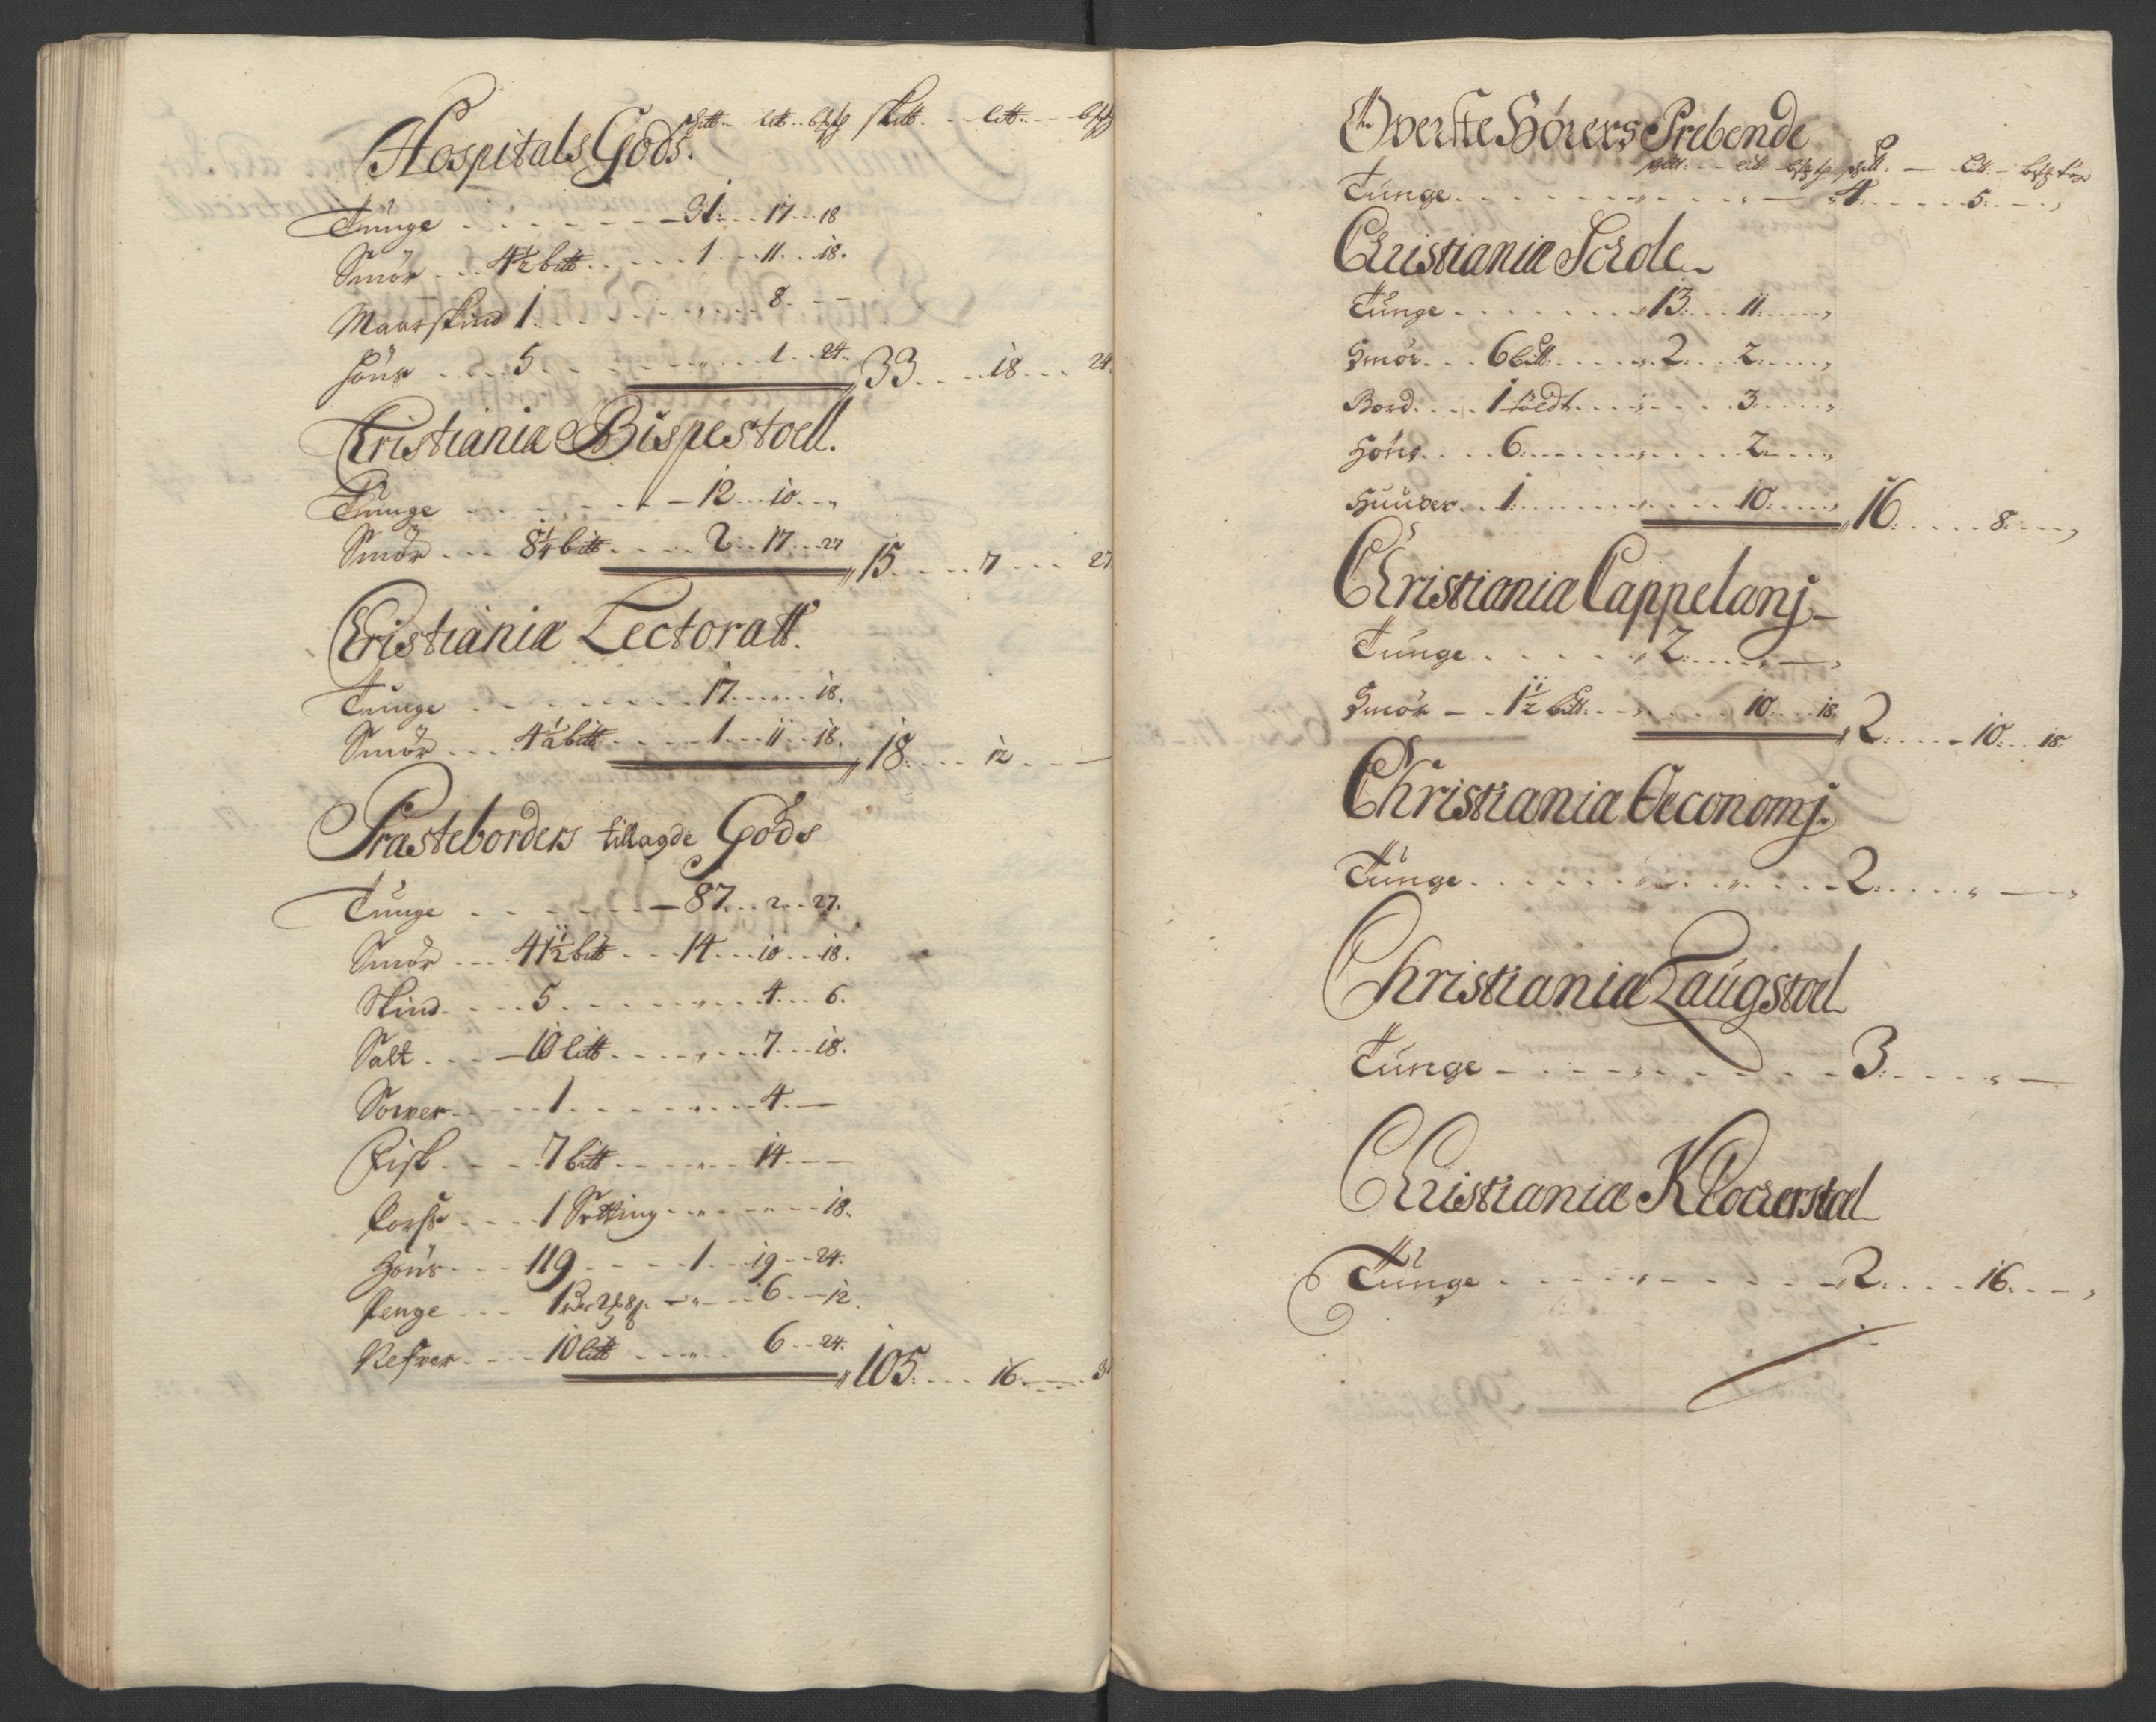 Hospitals Gods.
Tünge - - - - - - 31 - - 17 - - 18
Smör - - 4½ bttt - - - - 1 - - 11 - - 18.
Maarskind 1 - - - - - - - 8 - -
Höns - - 5 - - - - - „ - - 1 - - 24. „33 - - 18 - - 24
Cristiania Bispestoell.
Tünge - - - - - - 12 - - 10 - „
Smör - - - 8¼ bttt - - - - 2 - - 17 - - 27 „15 - - - 7 - - - 27
Cristiania Lectoratt.
Tünge - - - - - - - 17 - - „ - - 18.
Smör - - - 4½ bttt - - - - 1 - - 11 - - 18. „18 - - - 12 - - —
Præsteborders tillagde Gods
Tünge - - - - - - 87 - - 2 - - 27.
Smör - - - 41½ bttt - - 14 - - 10 - - 18.
Skind - - - 5 - - - - - „ - - 4 - - 6.
Salt - - - 10 littt - - - - „ - - 7 - - 18.
1 - - - - „ - - 4 - —
Fisk - - - 7 bttt - - - - „ - - 14 - —
1 Setting - - „ - - „ - - 18.
Höns - - - 119 - - - - 1 - - 19 - - 24.
Penge - - - 1 - „ - - 6 - - 12.
Nefver - - - 10 littt - - - „ - - 6 - - 24. „105 - - - 16 - - - 3
Overste Hörers Prebende
Tünge - - - - - - „ - - - „ — „4 - - - - 5 - - - „
Christiania Schole
Tünge - - - - - - - „13 - - 11 - - - „
Smör - - - 6 bttt - - - - „2 - - 2 - - - „
Bord - - - 1 töldt - - - „ - - - 3 - - - „
Höns - - - 6 - - - - - „ - - - 2 - - - „
Huuder - - 1 - - - - - „ - - - 10 - - - „ „16 - - - - 8 - - „
Christiania Cappelanj
Tünge - - - - - „2 - - - „ — „
Smör - - 1½ bttt - - „ - - - 10 - - 18. „2 - - - 10 - - 18.
Christiania Oeconomj.
Tünge - - - - - - „ - - „ - - 2 - - - „ — „
Christiania Laugstoel
Tünge - - - - - „ - - - - - 3 - - - - „ —
Christiania Klockerstoel
Tünge - - - - - „ - - - - - 2 - - - 16 - - „